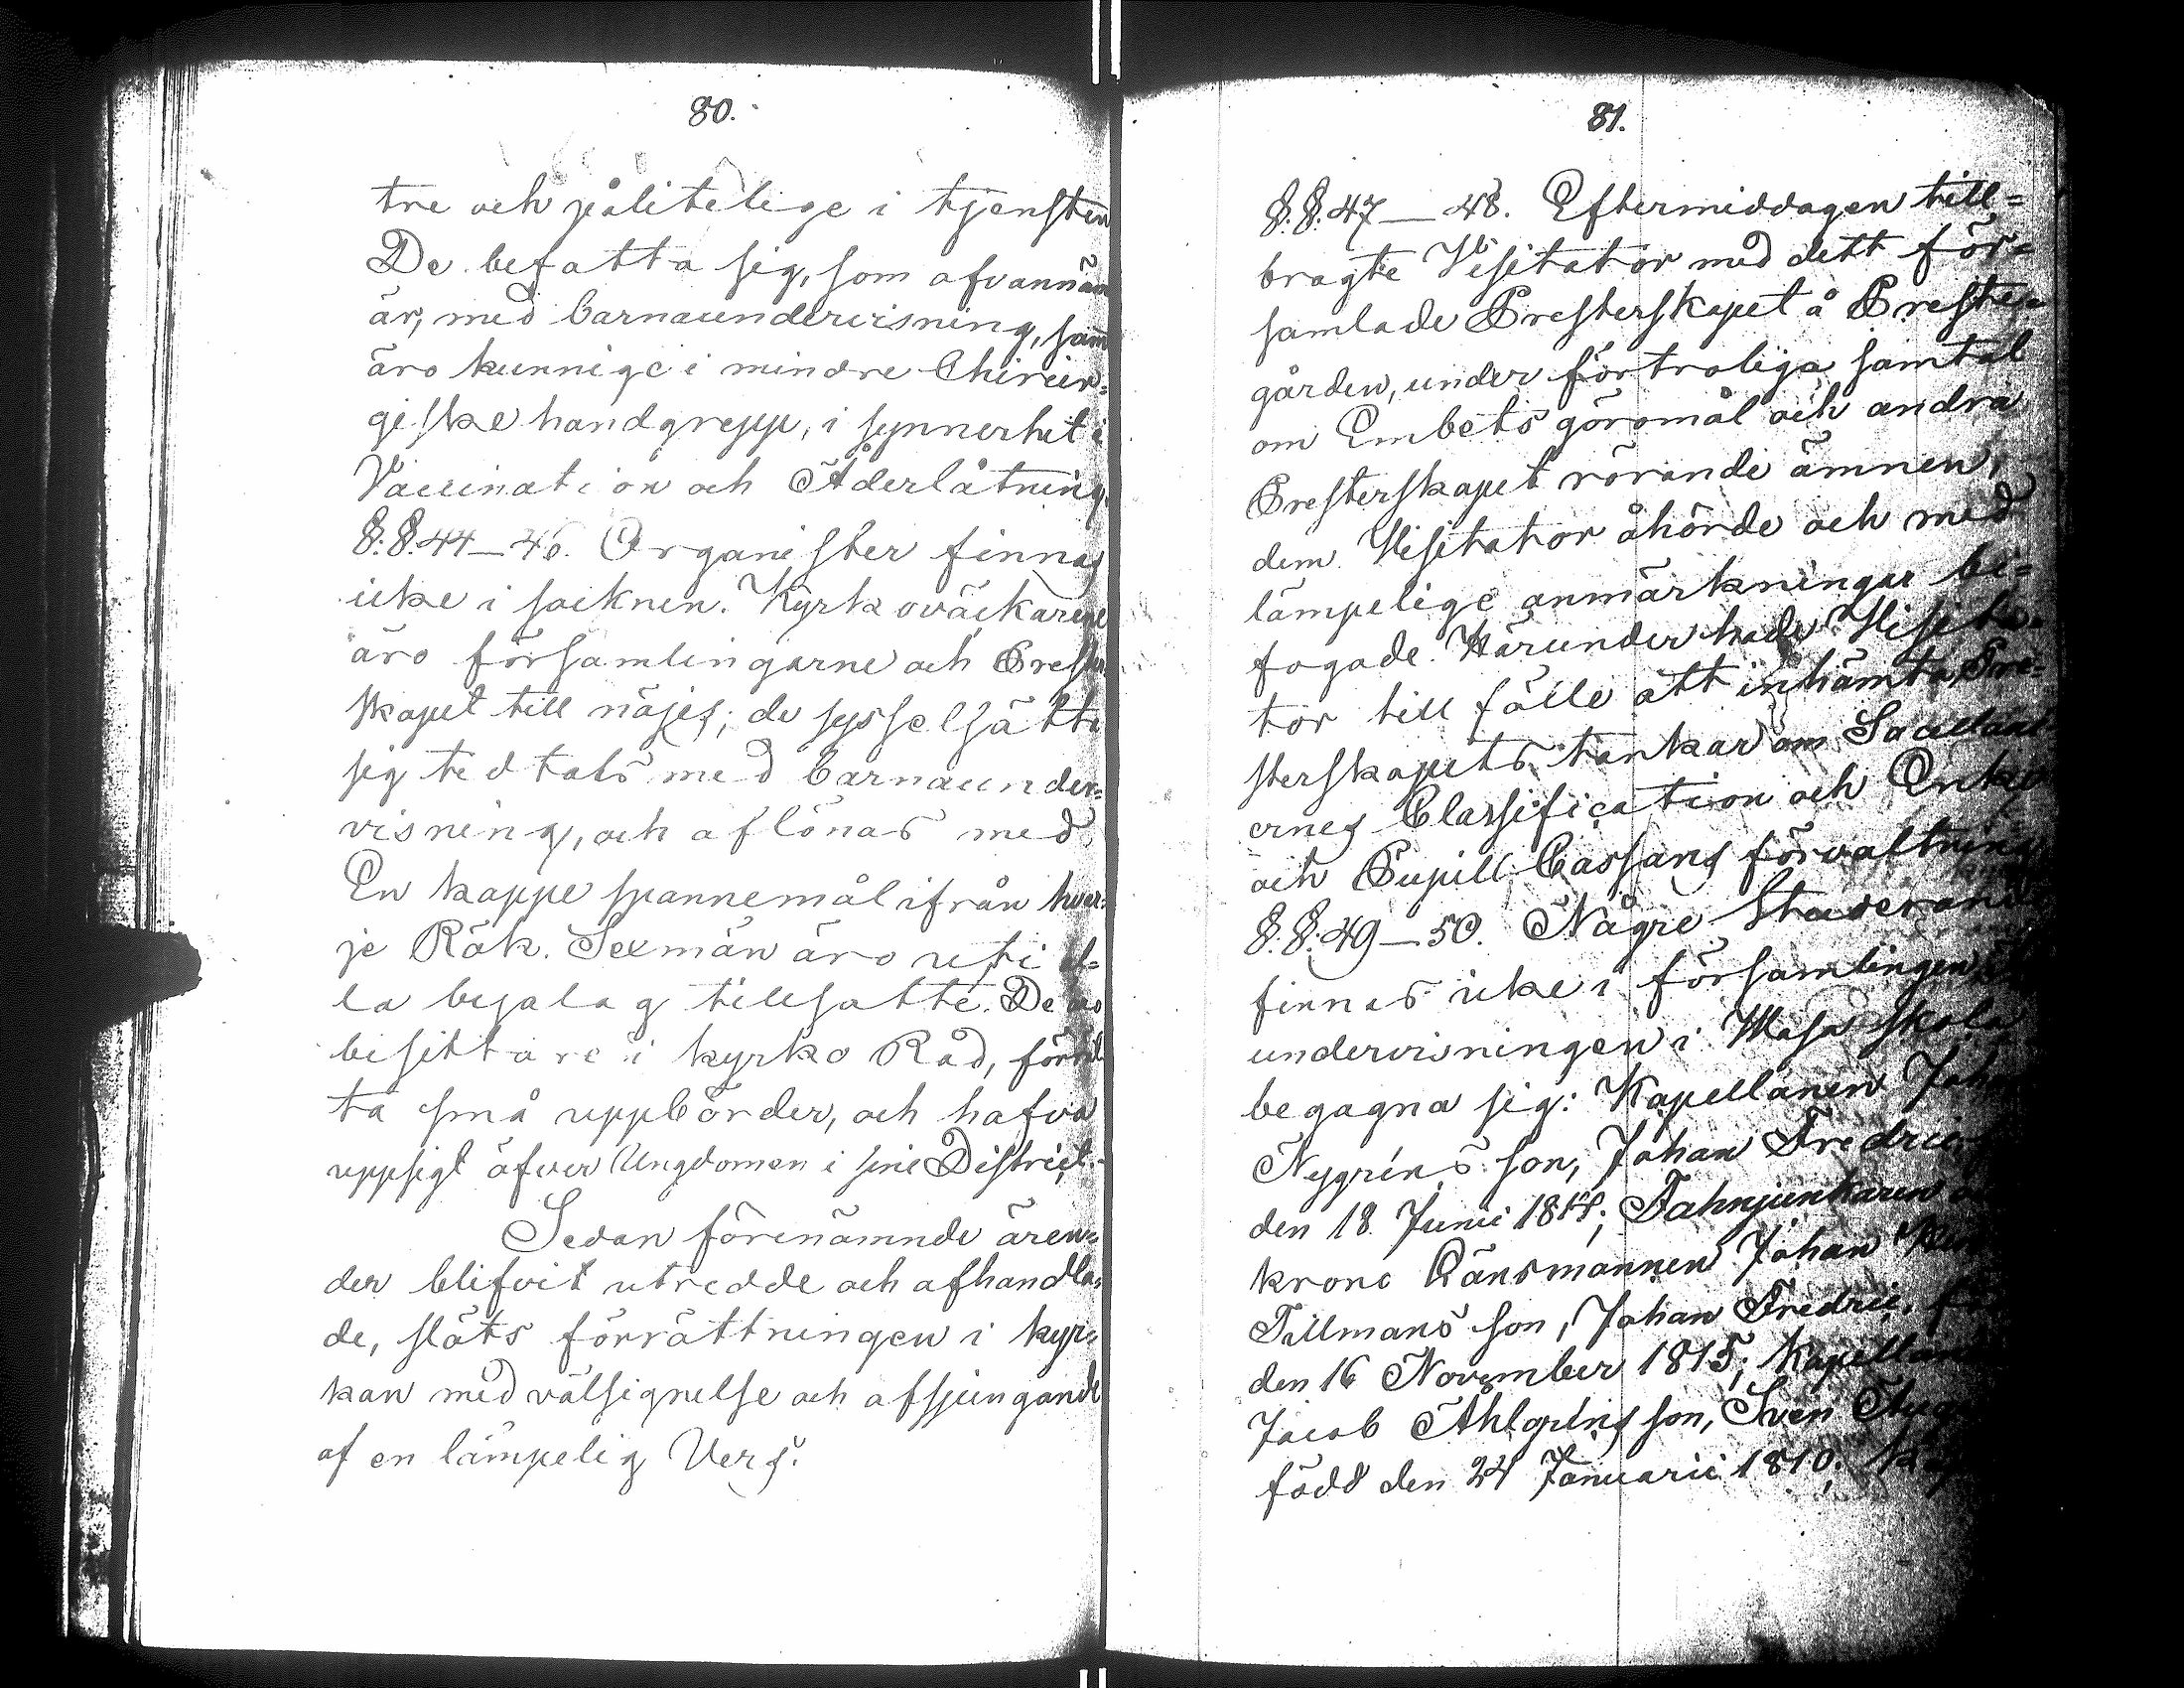 80.
tre och pålitelige i tjensten
De befatta sig, som ofvannäm
är, med barnaundervisning, samt
äro kunnige i mindre Chirur=
giske handgrepp, i synnerhet i
Vaccination och Åderlåtning.
§.§.44—46. Organister finnas
icke i socknen. Kyrkoväckarene
äro församlingarne och Prester
skapet till nöjes; de sysselsätte
sig tedtals med barnaunder=
visning, och aflönas med
En kappe spannemål ifrån hvar=
je Rök. Sexmän äro uti al=
la bysalag tillsatte. De äro
bisittare i kyrko Råd, förrät
ta små uppbörder, och hafva
uppsigt öfver Ungdomen i sine District.
Sedan förenämnde ären=
der blifvit utredde och afhandla=
de, slöts förrättningen i kyr=
kan med välsignelse och afsjungande
af en lämpelig Vers.
81.
§.§.47—48. Eftermiddagen till=
bragte Visitator med dett för=
samlade Presterskapet å Preste=
gården, under förtroliga samtal
om Embets göromål och andra
Presterskapet rörande ämnen,
dem Visitator åhörde och med
lämpelige anmärkningar be=
fogade. Härunder hade Visita=
tor tillfälle att inhämta Pre=
sterskapets tankar om Sacellani
ernes Classification och Enke
och Pupill Cassans förvaltning
§.§.49—50. Någre Studerande
finnas icke i församlingen
undervisningen i Wasa Skola
begagna sig: Kapellanen Johan
Nygréns son, Johan Fredric,
den 18 Junii 1814; Fahnjunkaren
krono Länsmannen Johan
Tillmans son, Johan Fredric,
den 16 November 1815; Kapellanen
Jacob Åhlgréns son, Sven
född den 24 Januarii 1810;